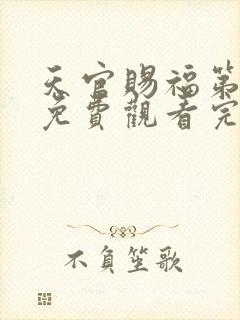 天官賜福第
免費觀看完
不負笙歌